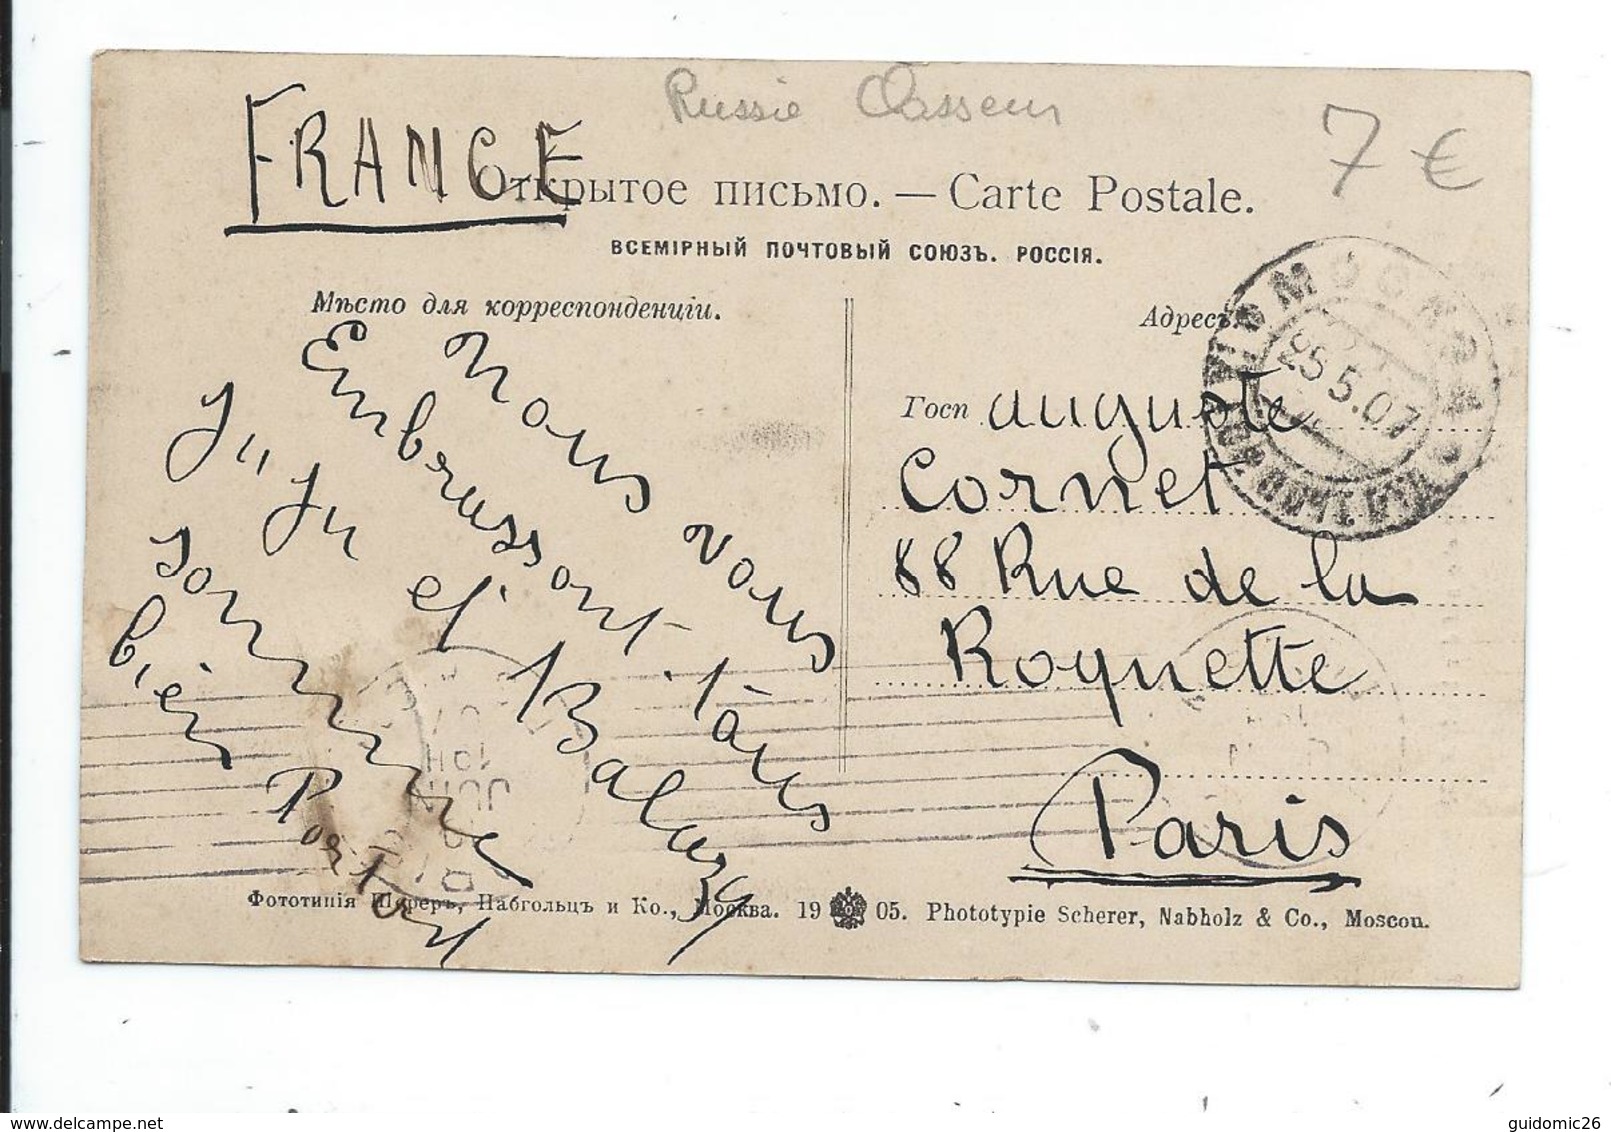 Russie Classeur
7 €
FRANCE
Открытое письмо. — Carte Postale.
ВСЕМІРНЫЙ ПОЧТОВЫЙ СОЮЗЪ. РОССІЯ.
Мѣсто для корреспонденціи.
Адресъ.
МОСКВА
25.5.07
Nous vous
Embrassons tous
Ju Ju et Balussy
sommes
bien Porter
Госп auguste
Cornet
88 Rue de la
Roquette
Paris
JUIN
Фототипія Шереръ, Набгольцъ и Ко., Москва. 19 05. Phototypie Scherer, Nabholz & Co., Moscou.
guidomic26